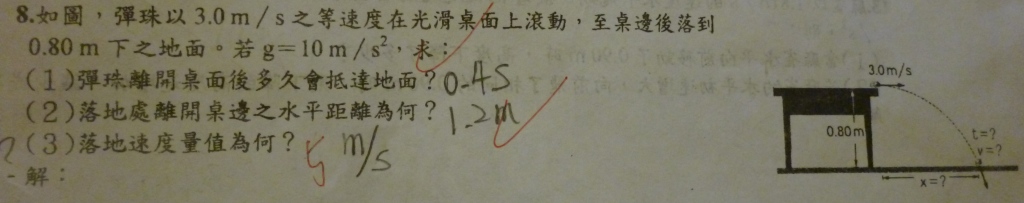 8.如圖，彈珠以3.0m/s之等速度在光滑桌面上滾動，至桌邊後落到
0.80m下之地面。若g=10m/s²，求：
(1)彈珠離開桌面後多久會抵達地面？0.4S
(2)落地處離開桌邊之水平距離為何？1.2m
?(3)落地速度量值為何？5 m/s
解：
3.0m/s
0.80m
t=?
v=?
x=?